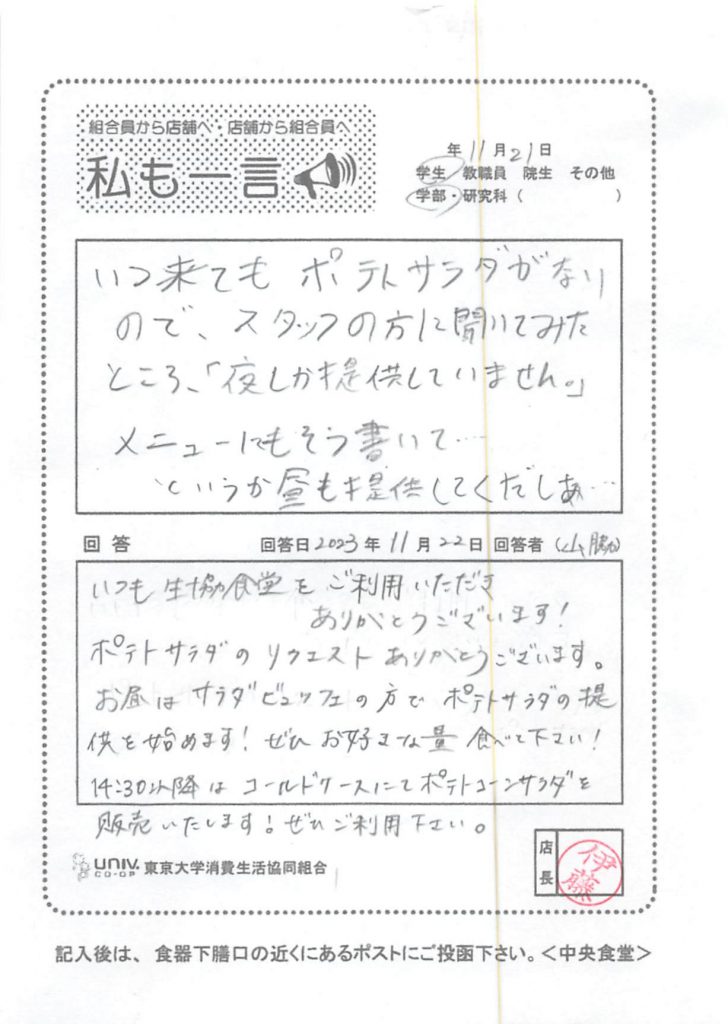 組合員から店舗へ・店舗から組合員へ
私も一言
年 11月21日
学生 教職員 院生 その他
学部・研究科( )
いつ来ても ポテトサラダがない
ので、スタッフの方に聞いてみた
ところ、「夜しか提供していません。」
メニューにもそう書いて…
というか昼も提供してくだしあ…
回答 回答日2023年11月22日 回答者
いつも 生協食堂を ご利用いただき
ありがとうございます!
ポテトサラダのリクエスト ありがとうございます。
お昼は サラダビュッフェの方で ポテトサラダの提
供を始めます! ぜひ お好きな量 食べて下さい!
14:30以降は コールドケースにて ポテトコーンサラダを
販売いたします! ぜひご利用下さい。
UNIV. CO-OP 東京大学消費生活協同組合
店長 伊藤
記入後は、食器下膳口の近くにあるポストにご投函下さい。<中央食堂>